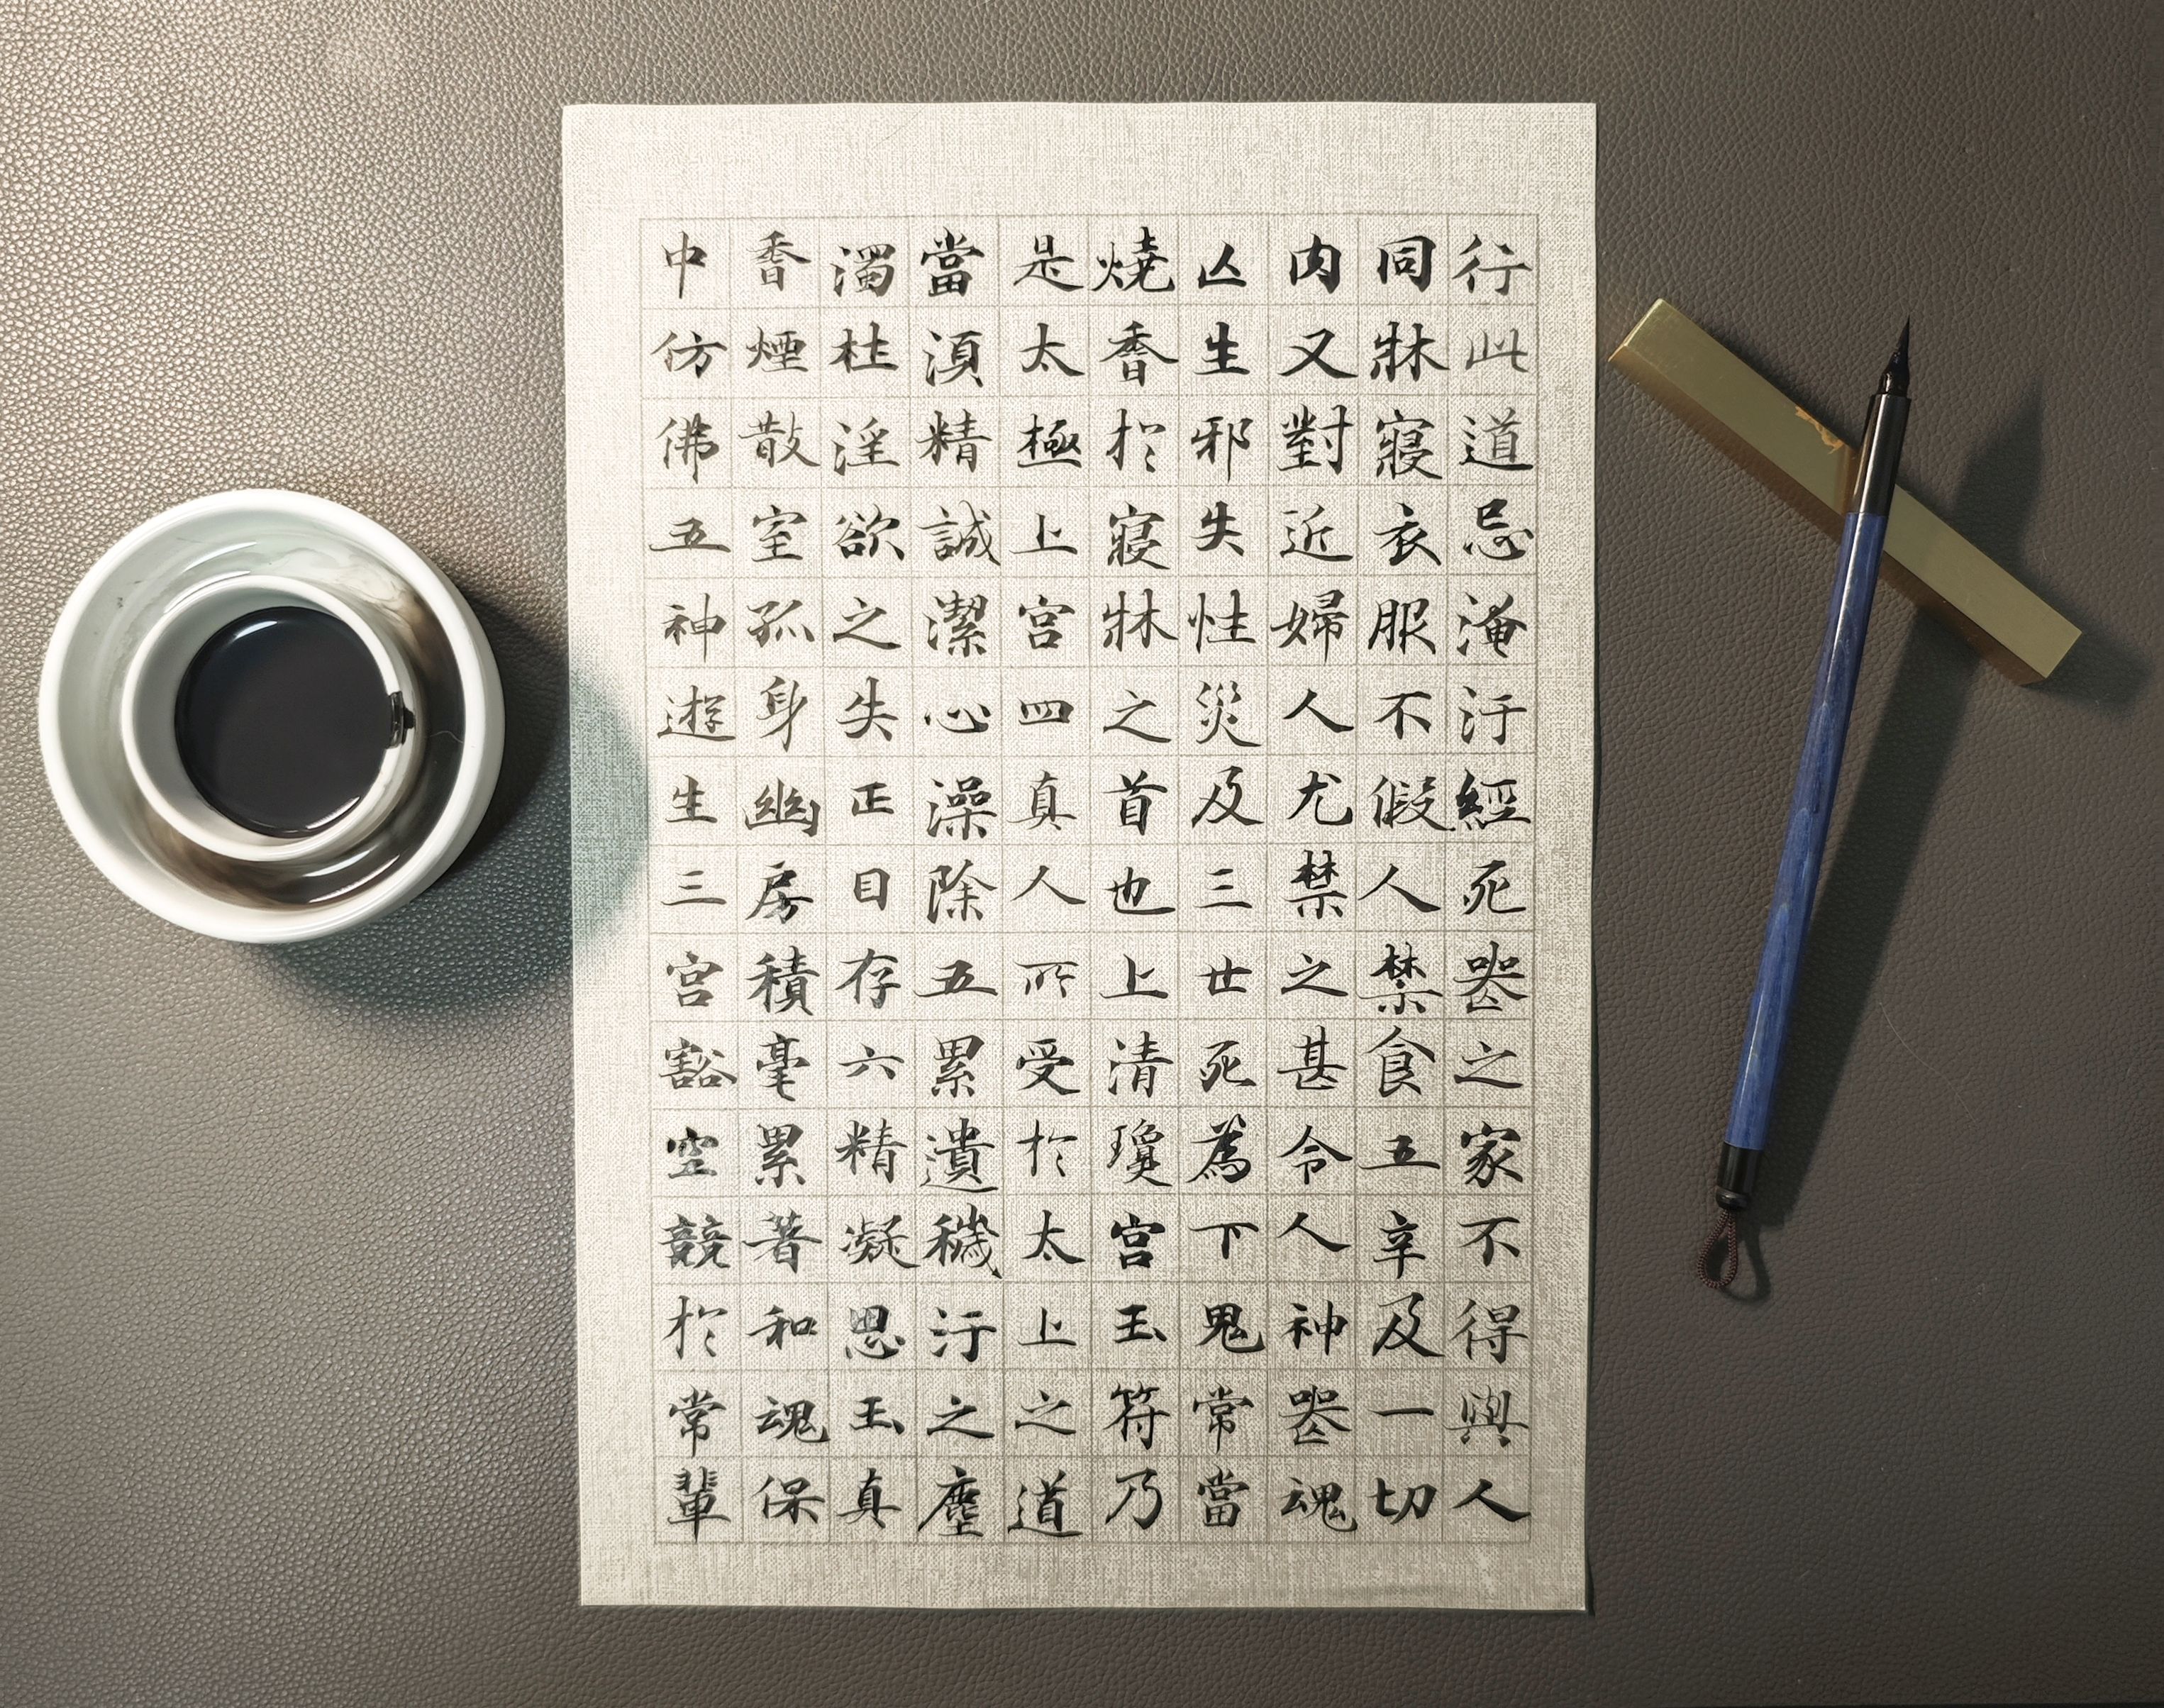 行此道忌淹汙經死喪之家不得與人
同牀寢衣服不假人禁食五辛及一切
内又對近婦人尤禁之甚令人神喪魂
亡生邪失性災及三世死為下鬼常當
燒香於寢牀之首也上清瓊宮玉符乃
是太極上宮四真人所受於太上之道
當須精誠潔心澡除五累遺穢汙之塵
濁杜淫欲之失正目存六精凝思玉真
香煙散室孤身幽房積毫累著和魂保
中仿佛五神遊生三宮豁空競於常輩